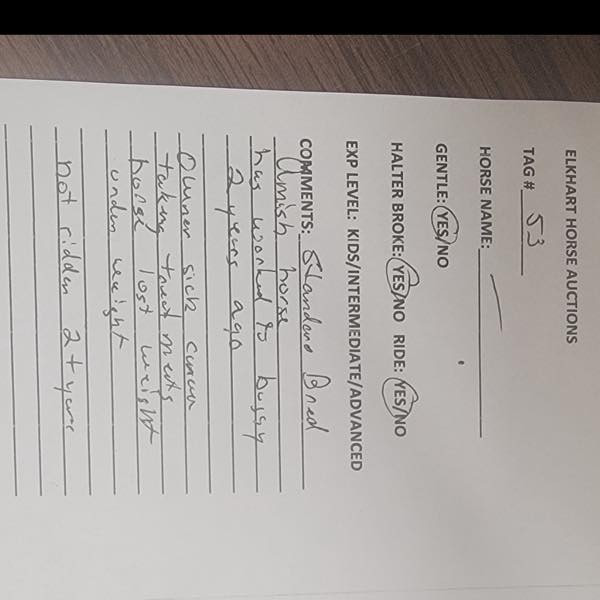 ELKHART HORSE AUCTIONS
TAG # 53
HORSE NAME:
GENTLE: YES/NO
HALTER BROKE: YES/NO RIDE: YES/NO
EXP LEVEL: KIDS/INTERMEDIATE/ADVANCED
COMMENTS: Standard Bred
Amish horse
has worked to buggy
2 years ago
Owner sick cancer
taking treatments
horse lost weight
under weight
not ridden 2+ years